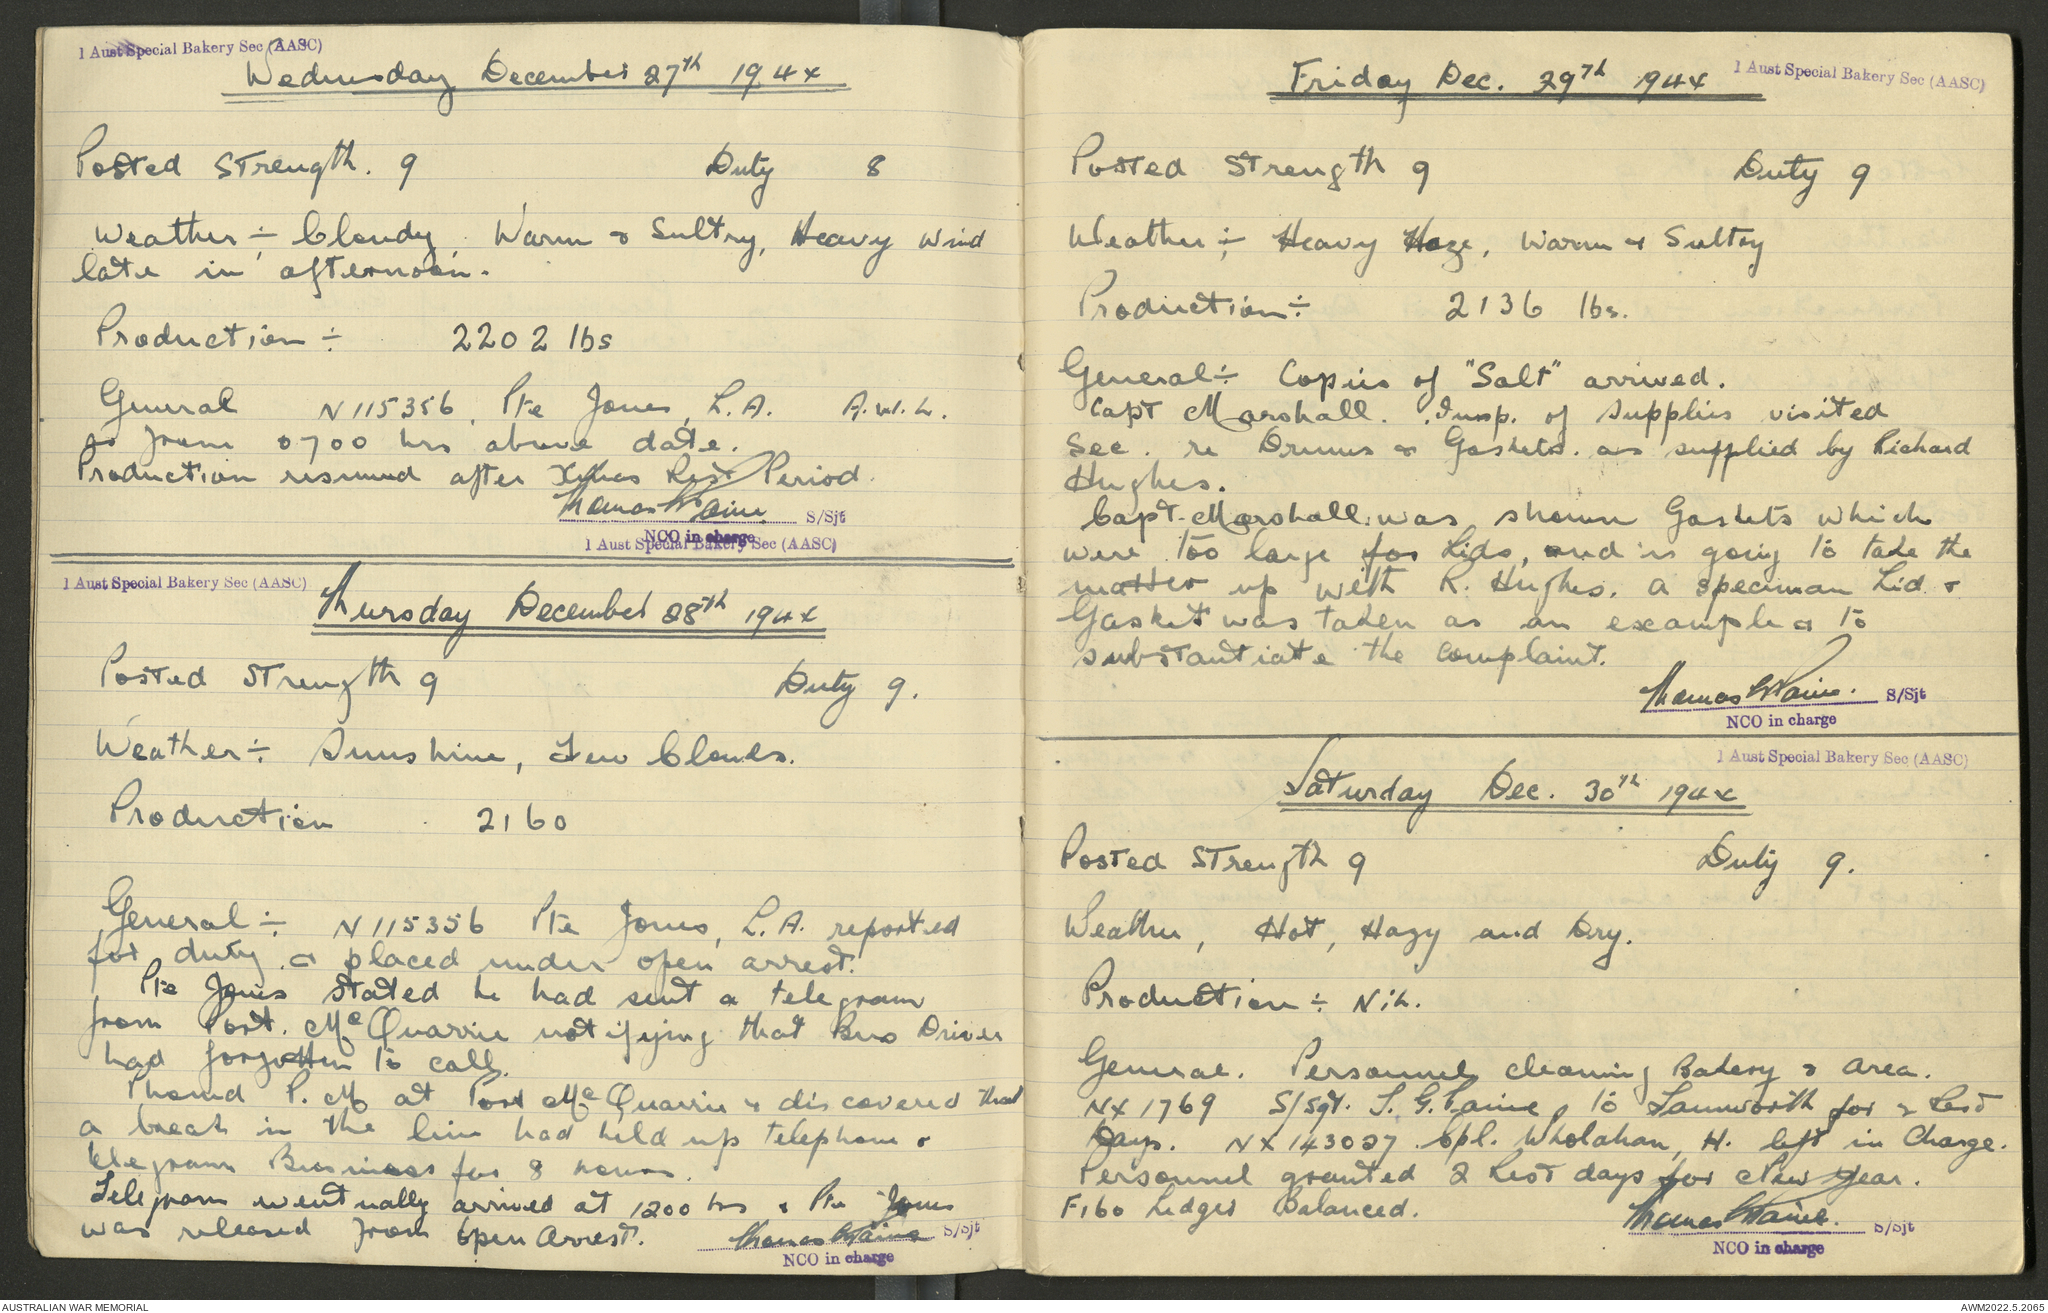 1 Aust Special Bakery Sec (AASC)
Wednesday December 27th 1944
Posted Strength. 9 Duty 8
Weather ÷ Cloudy, Warm & Sultry, Heavy Wind
late in afternoon.
Production ÷ 2202 lbs
General N115356, Pte Jones, L.A. A.W.L.
as from 0700 hrs above date.
Production resumed after Xmas Rest Period.
Thomas G Paine S/Sjt
NCO in charge
1 Aust Special Bakery Sec (AASC)
1 Aust Special Bakery Sec (AASC)
Thursday December 28th 1944
Posted Strength 9 Duty 9.
Weather ÷ Sunshine, Few Clouds.
Production 2160
General ÷ N115356 Pte Jones, L.A. reported
for duty & placed under open arrest.
Pte Jones stated he had sent a telegram
from Port. McQuarrie notifying that Bus Driver
had forgotten to call.
Phoned P.M at Port McQuarrie & discovered that
a break in the line had held up telephone &
telegram Business for 8 hours.
Telegram eventually arrived at 1200 hrs & Pte Jones
was released from Open Arrest. Thomas G Paine S/Sjt
NCO in charge
1 Aust Special Bakery Sec (AASC)
Friday Dec. 29th 1944
Posted Strength 9 Duty 9
Weather ÷ Heavy Haze, Warm & Sultry
Production ÷ 2136 lbs.
General ÷ Copies of "Salt" arrived.
Capt Marshall. Insp. of Supplies visited
Sec. re Drums & Gaskets. as supplied by Richard
Hughes.
Capt. Marshall was shown Gaskets which
were too large for Lids, and is going to take the
matter up with R. Hughes. A speciman Lid &
Gasket was taken as an example & to
substantiate the complaint.
Thomas G Paine. S/Sjt
NCO in charge
1 Aust Special Bakery Sec (AASC)
Saturday Dec. 30th 1944
Posted Strength 9 Duty 9.
Weather, Hot, Hazy and Dry.
Production ÷ Nil.
General. Personnel cleaning Bakery & Area.
NX1769 S/Sgt. T.G. Paine, to Tamworth for 2 Rest
Days. NX143027 Cpl. Wholahan, H. left in Charge.
Personnel granted 2 Rest days for New Year.
F160 Ledgers Balanced. Thomas G Paine. S/Sjt
NCO in charge
AUSTRALIAN WAR MEMORIAL AWM2022.5.2065